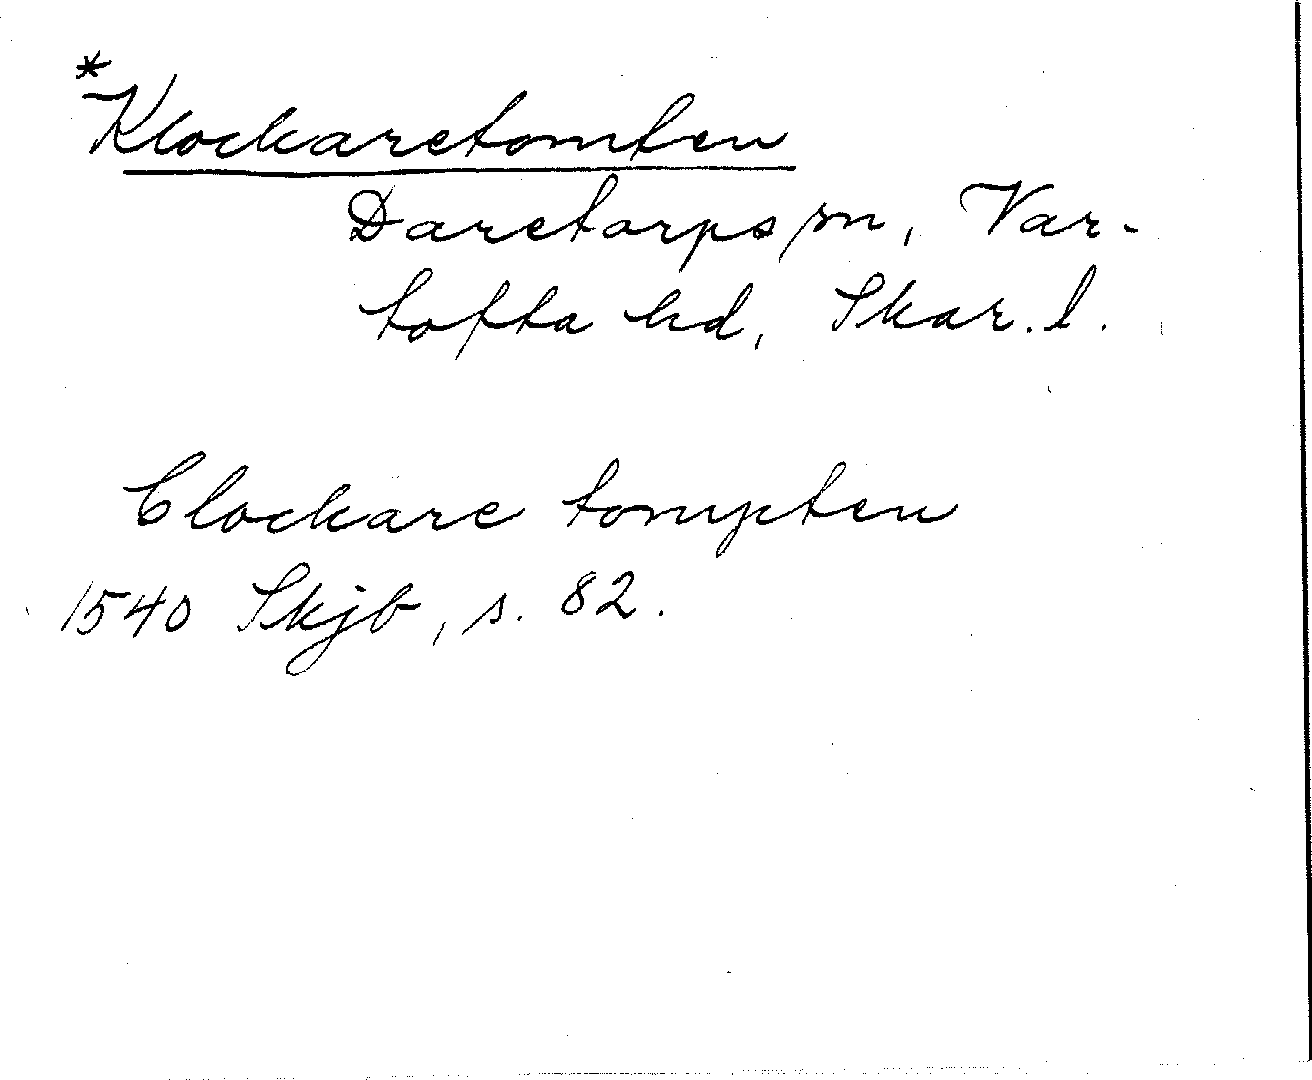 *Klockaretomten
Daretorps sn, Var-
tofta hd, Skar. l.
Clockare tompten
1540 Skjb, s. 82.